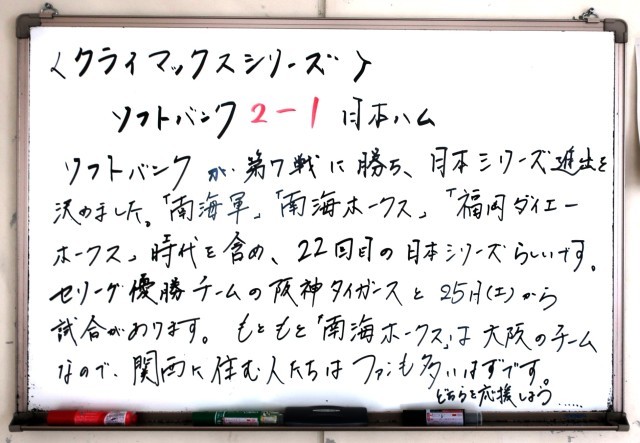 〈クライマックスシリーズ〉
ソフトバンク 2-1 日本ハム
ソフトバンクが第7戦に勝ち、日本シリーズ進出を
決めました。「南海軍」「南海ホークス」「福岡ダイエー
ホークス」時代を含め、22回目の日本シリーズらしいです。
セリーグ優勝チームの阪神タイガースと25日(土)から
試合があります。もともと「南海ホークス」は大阪のチーム
なので、関西に住む人たちはファンも多いはずです。
どちらを応援しよう……